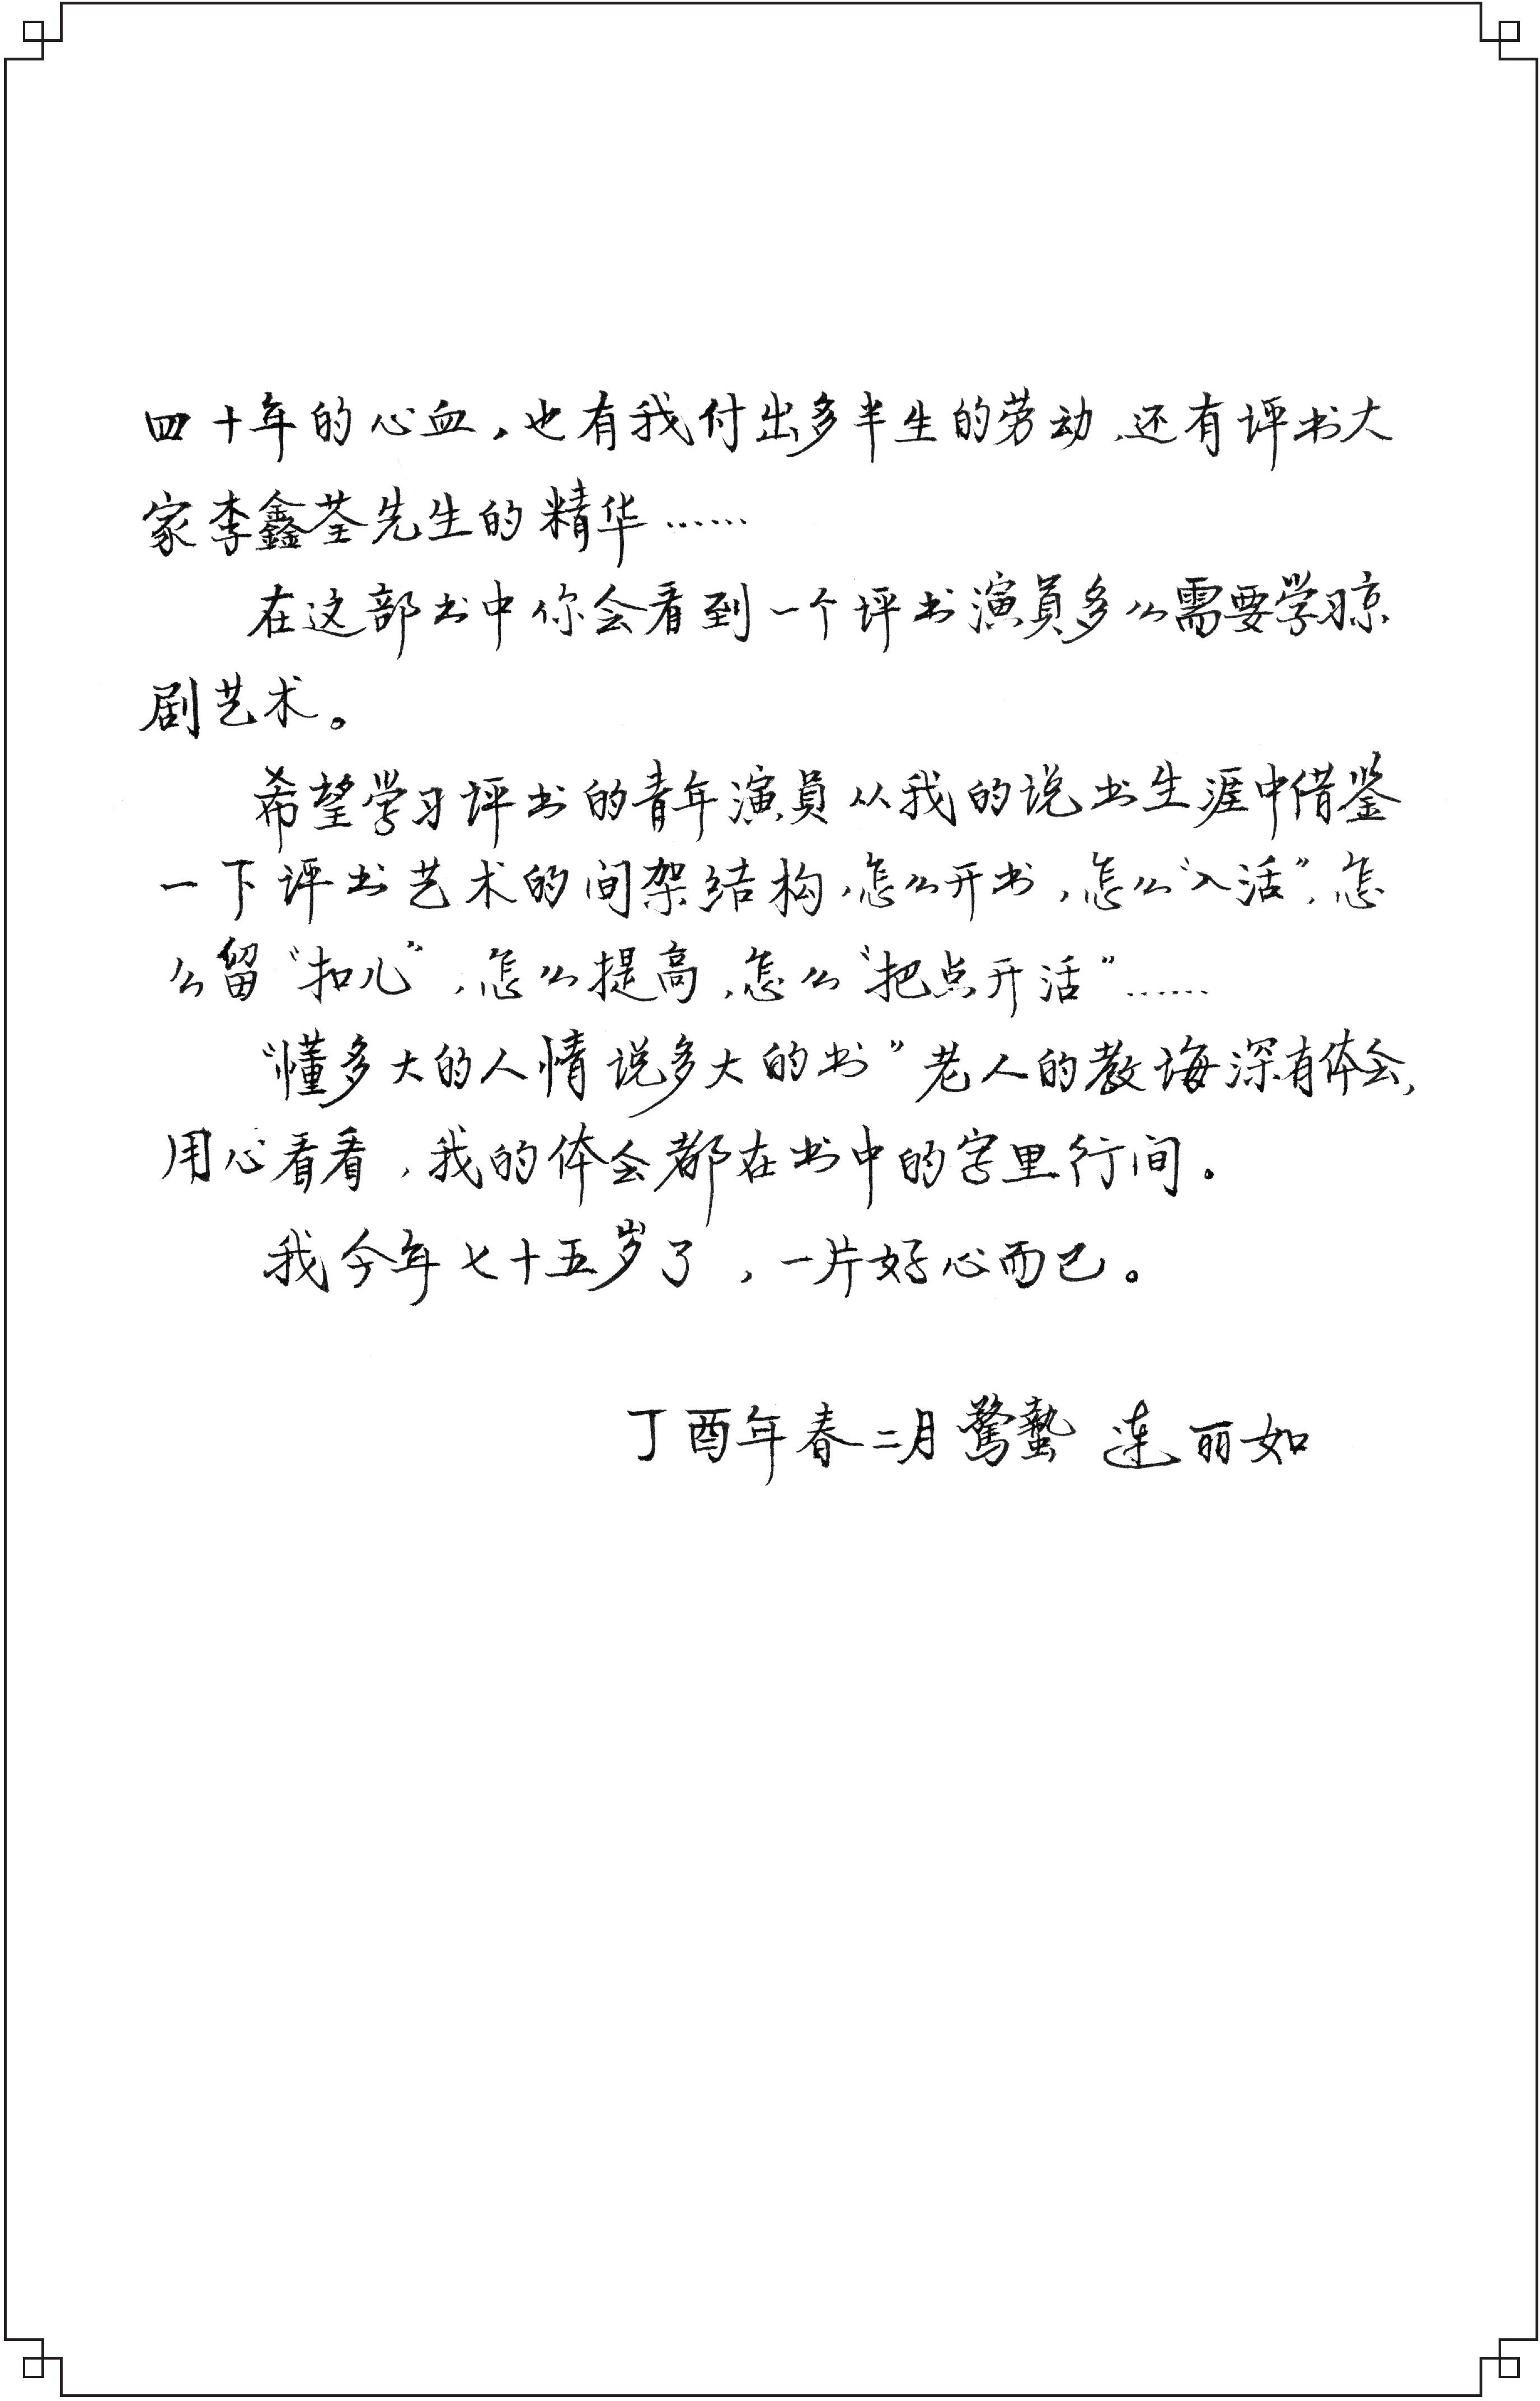 四十年的心血，也有我付出多半生的劳动，还有评书大
家李鑫荃先生的精华……
在这部书中你会看到一个评书演員多么需要学习京
剧艺术。
希望学习评书的青年演員从我的说书生涯中借鉴
一下评书艺术的间架结构，怎么开书，怎么“入活”，怎
么留“扣儿”，怎么提高，怎么“把点开活”……
“懂多大的人情说多大的书”老人的教诲深有体会，
用心看看，我的体会都在书中的字里行间。
我今年七十五岁了，一片好心而已。
丁酉年春二月驚蟄 连丽如